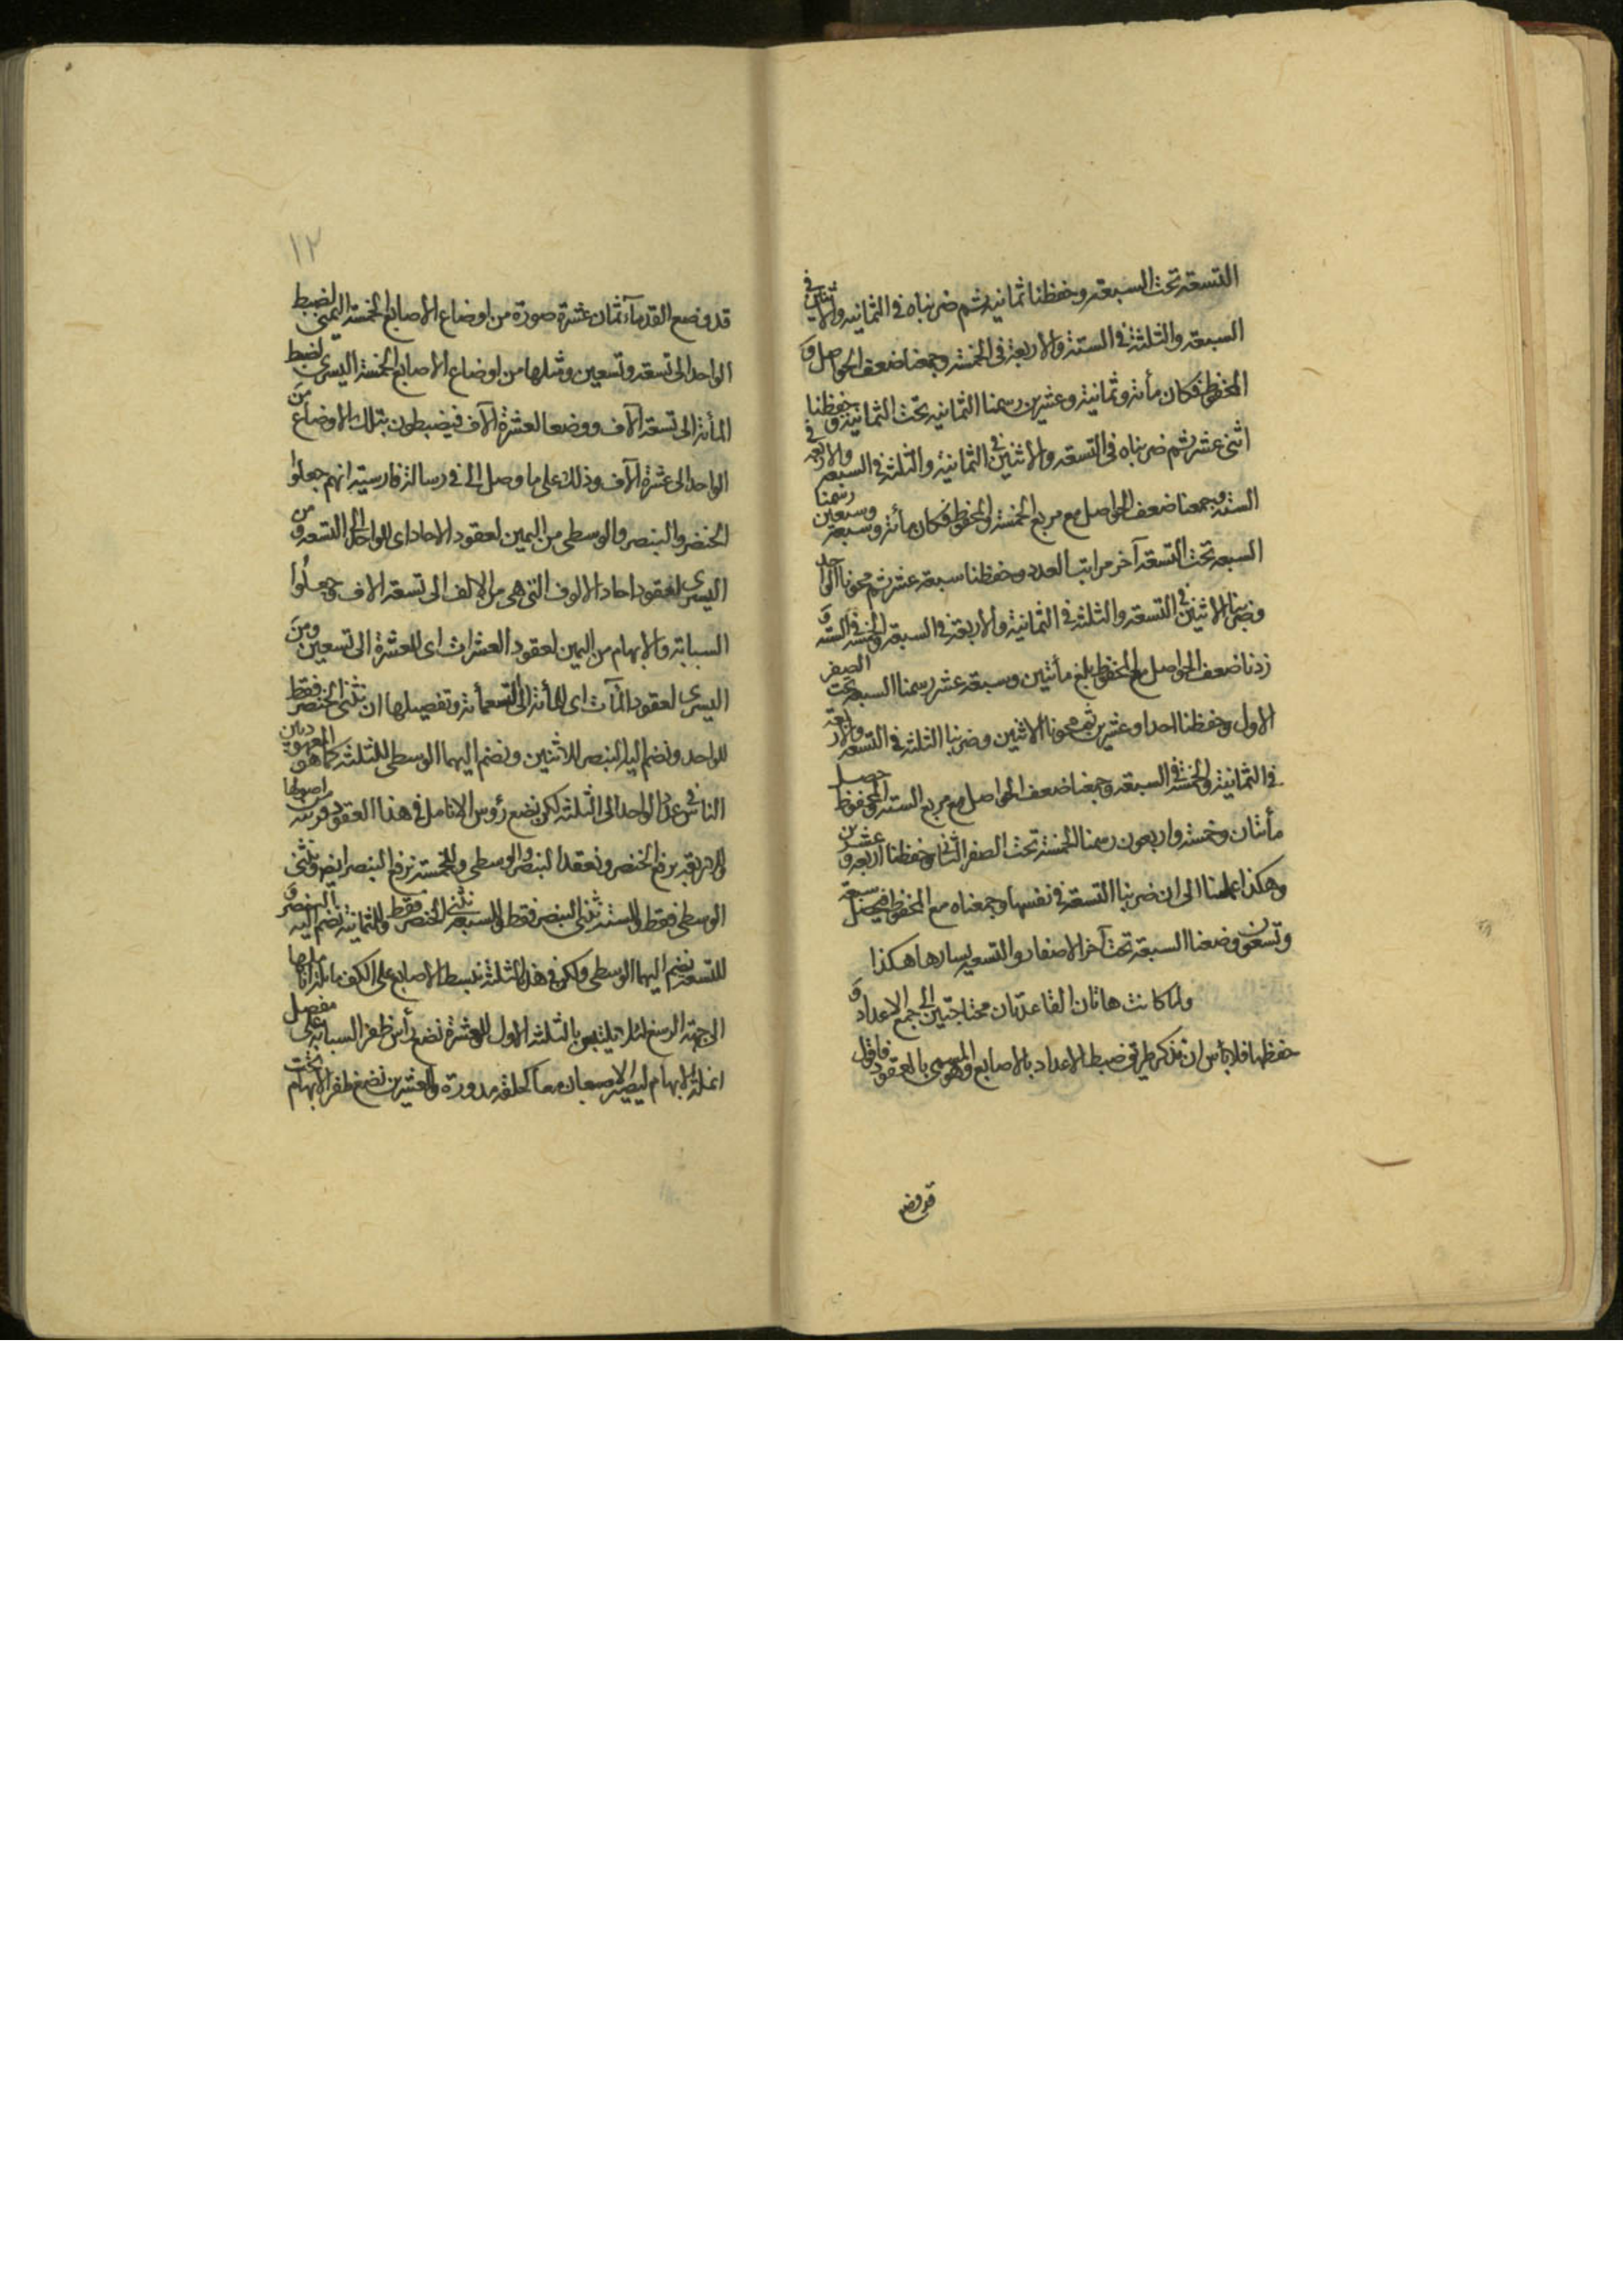 التسعة تحت السبعة وحفظنا ثمانية ثم ضربناه في الثمانية والاثنين في
السبعة والثلثة في الستة والاربعة في الخمسة وجمعنا ضعف الحواصل و
المحفوظ فكان مأتة وثمانية وعشرين رسمنا الثمانية تحت الثمانية وحفظنا
اثنى عشر ثم ضربناه في التسعة والاثنين في الثمانية والثلثة في السبعة والاربعة في
الستة وجمعنا ضعف الحواصل مع مربع الخمسة والمحفوظ فكان مأتة وسبعة وسبعين رسمنا
السبعة تحت التسعة آخر مراتب العدد وحفظنا سبعة عشر ثم محونا الواحد
وضربنا الاثنين في التسعة والثلثة في الثمانية والاربعة في السبعة والخمسة في الستة و
زدنا ضعف الحواصل مع المحفوظ بلغ مأتين وسبعة عشر رسمنا السبعة تحت الصفر
الاول وحفظنا احدا وعشرين ثم محونا الاثنين وضربنا الثلثة في التسعة والاربعة
في الثمانية والخمسة في السبعة وجمعنا ضعف الحواصل مع مربع الستة والمحفوظ حصل
مأتان وخمسة واربعون رسمنا الخمسة تحت الصفر الثاني وحفظنا اربعة و عشرين
وهكذا عملنا الى ان ضربنا التسعة في نفسها وجمعناه مع المحفوظ فيحصل سبعة
وتسعون وضعنا السبعة تحت آخر الاصفار والتسعة يسارها هكذا
ولما كانت هاتان القاعدتان محتاجتين الى جمع الاعداد و
حفظها فلا بأس ان نذكر طريق ضبط الاعداد بالاصابع وهو المسمى بالعقود فاقول
قد وضع
١٢
قد وضع القدماء ثمان عشرة صورة من اوضاع الاصابع الخمسة اليمنى لضبط
الواحد الى تسعة وتسعين ومثلها من اوضاع الاصابع الخمسة اليسرى لضبط
المأتة الى تسعة آلاف ووضعا لعشرة آلاف فيضبطون بتلك الاوضاع من
الواحد الى عشرة آلاف وذلك على ما وصل الى في رسالة فارسية انهم جعلوا
الخنصر والبنصر والوسطى من اليمين لعقود الاحاد اى للواحد الى التسعة و من
اليسرى لعقود احاد الالوف التى هى من الالف الى تسعة الاف وجعلوا
السبابة والابهام من اليمين لعقود العشرات اى للعشرة الى تسعين ومن
اليسرى لعقود المآت اى للمأتة الى التسعمأتة وتفصيلها ان تثنى الخنصر فقط
للواحد ونضم اليه البنصر للاثنين ونضم اليهما الوسطى للثلثة كما هو المعهود بين
الناس في عد الواحد الى الثلثة لكن نضع رؤس الانامل في هذا العقود قريبة من اصولها
وللاربعة يرفع الخنصر ونعقد البنصر والوسطى وللخمسة نرفع البنصر ايضا ونثنى
الوسطى فقط وللستة نثنى البنصر فقط وللسبعة نثنى الخنصر فقط وللثمانية نضم اليه البنصر و
للتسعة نضم اليهما الوسطى ولكن في هذه الثلثة نبسط الاصابع على الكف مائلة اناملها
الى جهة الرسغ لئلا يلتبس بالثلثة الاول وللعشرة نضع رأس ظفر السبابة على مفصل
انملة الابهام ليصير الاصبعان معا كحلقة مدورة وللعشرين نضع ظفر الابهام تحت